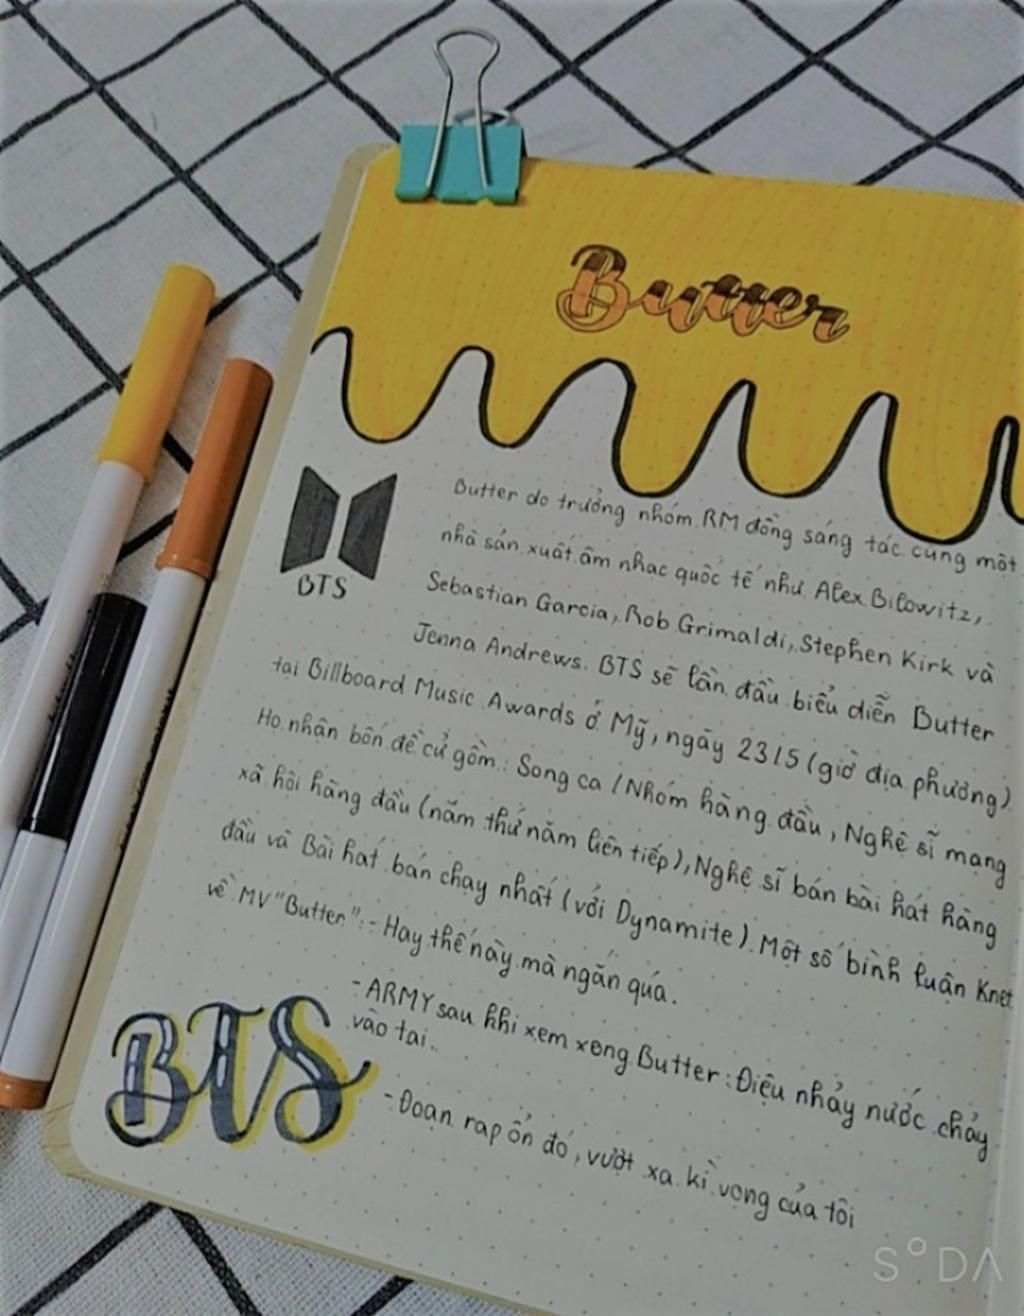 Butter
BTS
Butter do trưởng nhóm RM đồng sáng tác cùng một
nhà sản xuất âm nhạc quốc tế như Alex Bilowitz,
Sebastian Garcia, Rob Grimaldi, Stephen Kirk và
Jenna Andrews. BTS sẽ lần đầu biểu diễn Butter
tại Billboard Music Awards ở Mỹ, ngày 23/5 (giờ địa phương)
Họ nhận bốn đề cử gồm: Song ca / Nhóm hàng đầu, Nghệ sĩ mạng
xã hội hàng đầu (năm thứ năm liên tiếp), Nghệ sĩ bán bài hát hàng
đầu và Bài hát bán chạy nhất (với Dynamite). Một số bình luận Knet
về MV "Butter": - Hay thế này mà ngắn quá.
- ARMY sau khi xem xong Butter: Điệu nhảy nước chảy
vào tai..
- Đoạn rap ổn đó, vượt xa kì vọng của tôi
BTS
SODA